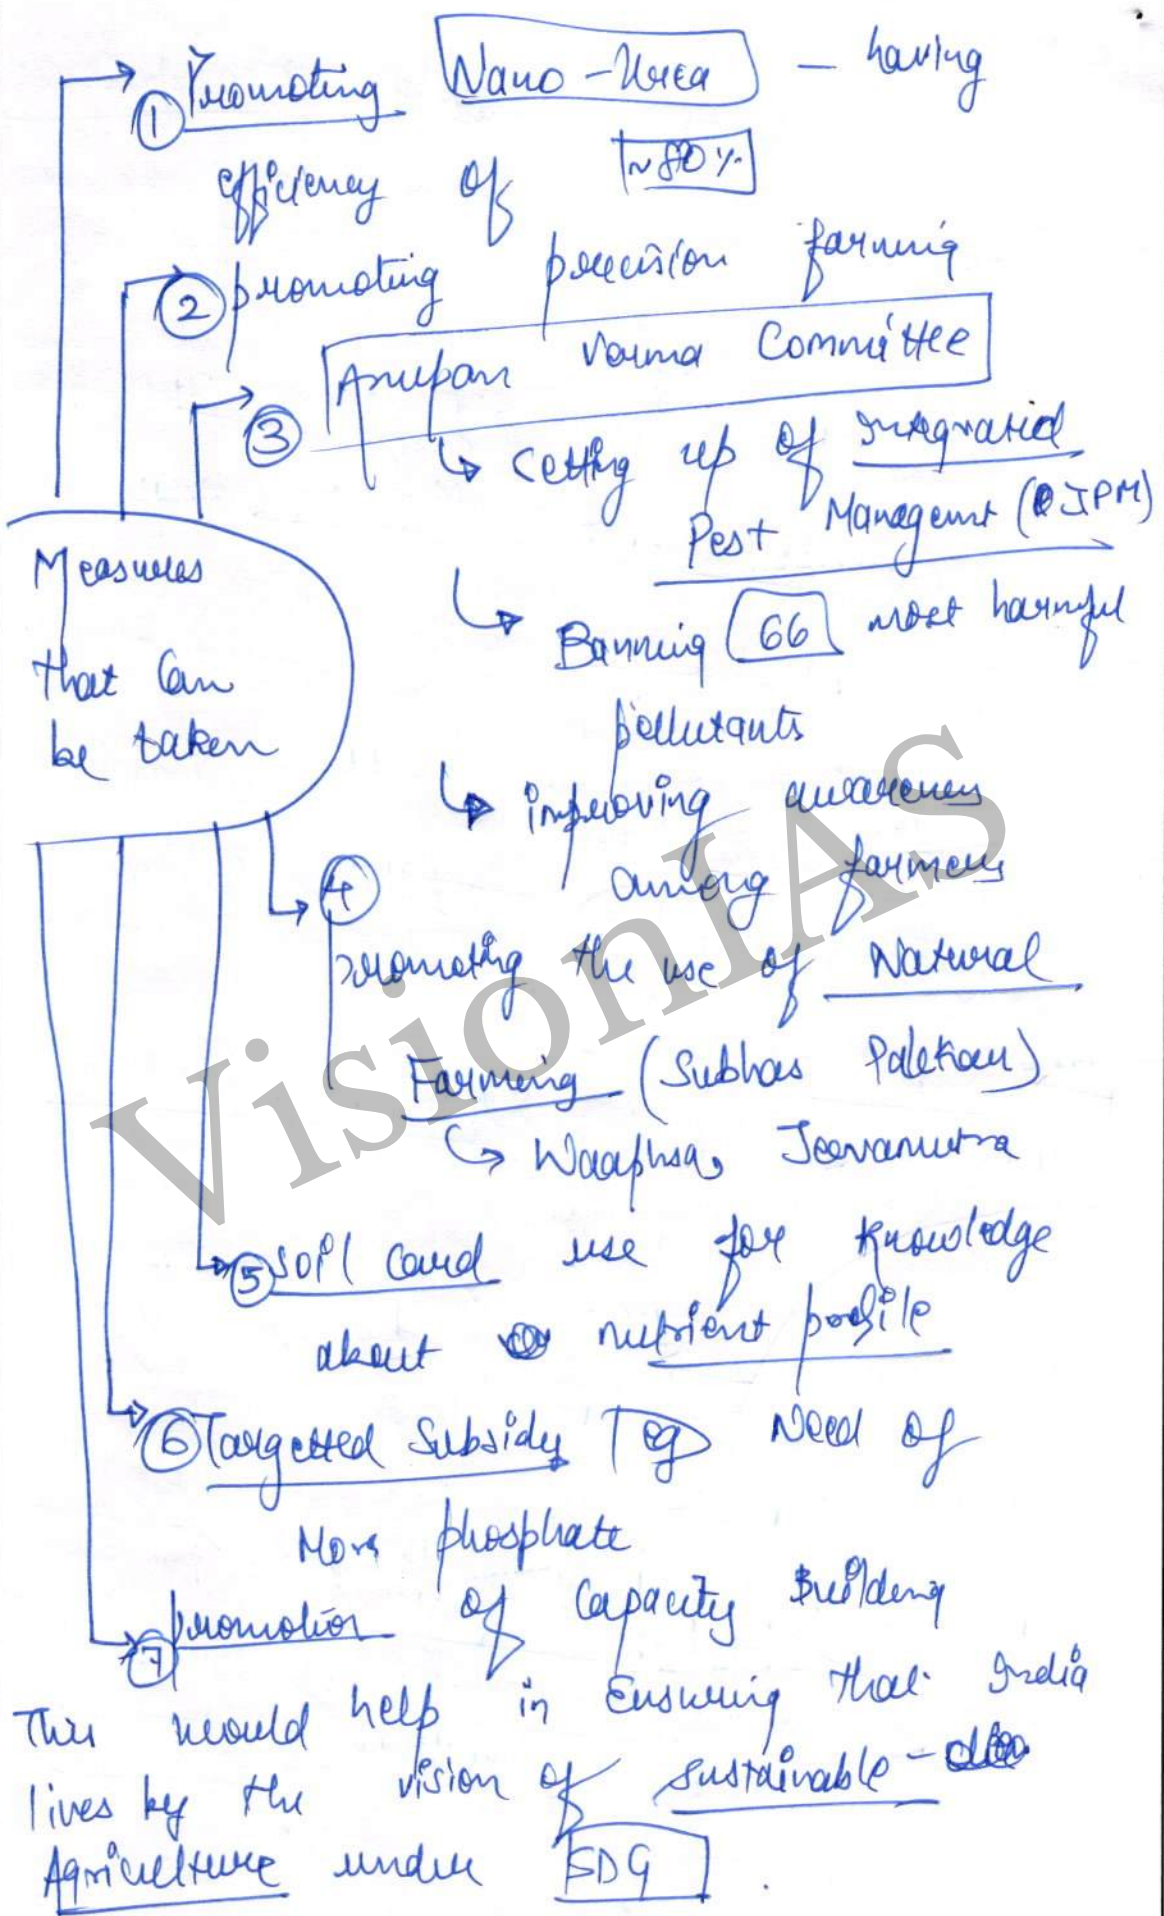 ① Promoting Nano-Urea - having
efficiency of ~80%
② promoting precision farming
③ Anupam Verma Committee
↳ Setting up of Integrated
Pest Managemt (IPM)
↳ Banning 66 most harmful
pollutants
↳ improving awareness
among farmers
Measures
that can
be taken
④
promoting the use of Natural
Farming (Subhas Palekar)
↳ Waaphsa, Jeevamutra
⑤ Soil Card use for knowledge
about nutrient profile
⑥ Targetted Subsidy eg Need of
More phosphate
⑦ promotion of Capacity Building
This would help in Ensuring that India
lives by the vision of sustainable -
Agriculture under SDG.
VisionIAS